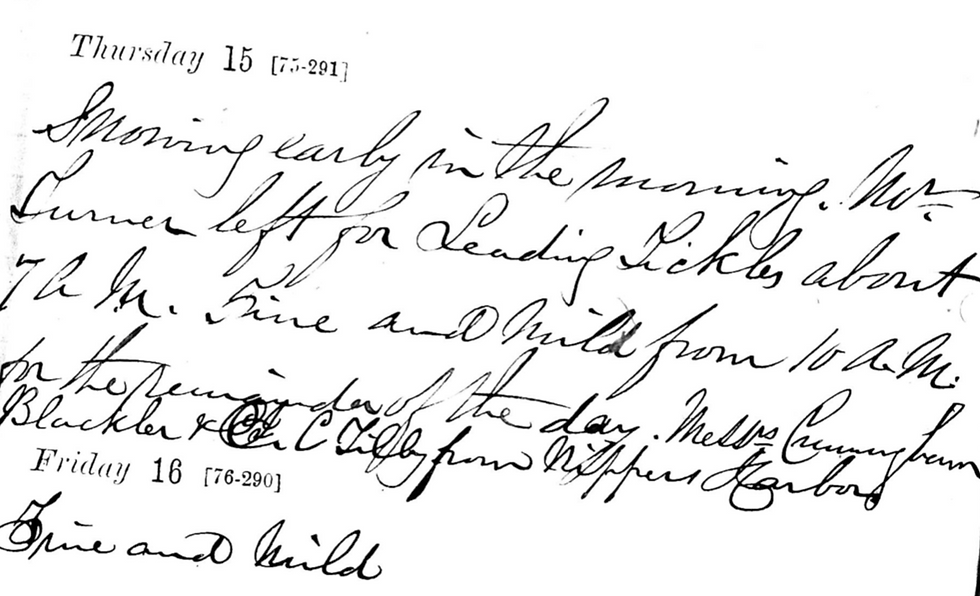 Thursday 15 [75-291]
Snowing early in the morning. Mr
Turner left for Leading Tickles about
7 A M. Fine and mild from 10 A. M.
for the remainder of the day. Messrs Cunningham
Blackler & C Tilley from Nippers Harbor
Friday 16 [76-290]
Fine and mild